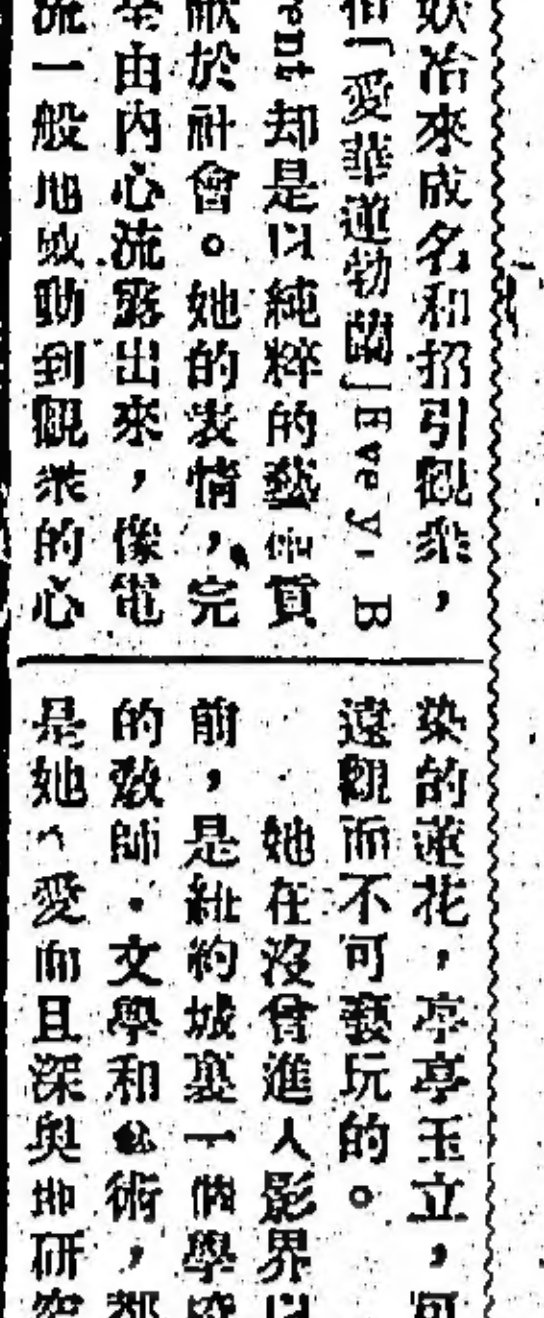 妖冶來成名和招引觀衆，
但「愛華蓮勃蘭」Evey, B
rent 却是以純粹的藝術貢
獻於社會。她的表情，完
全由內心流露出來，像電
流一般地感動到觀衆的心
染的蓮花，亭亭玉立，可
遠觀而不可褻玩的。
她在沒曾進人影界以
前，是紐約城裏一個學校
的敎師．文學和藝術，都
是她 愛而且深奥地研究